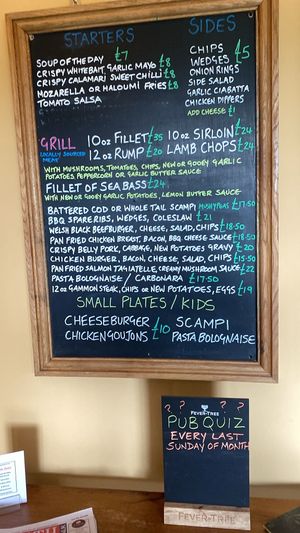 STARTERS
SOUP OF THE DAY £7
CRISPY WHITEBAIT GARLIC MAYO £8
CRISPY CALAMARI SWEET CHILLI £8
MOZARELLA OR HALOUMI FRIES £8
TOMATO SALSA
SIDES
CHIPS
WEDGES £5
ONION RINGS
SIDE SALAD
GARLIC CIABATTA
CHICKEN DIPPERS
ADD CHEESE £1
GRILL
LOCALLY SOURCED
MEAT
10oz FILLET £35 10oz SIRLOIN £24
12oz RUMP £20 LAMB CHOPS £24
WITH MUSHROOMS, TOMATOES, CHIPS, NEW OR GOOEY GARLIC
POTATOES PEPPERCORN OR GARLIC BUTTER SAUCE
FILLET OF SEA BASS £24
WITH NEW OR GOOEY GARLIC POTATOES, LEMON BUTTER SAUCE
BATTERED COD OR WHOLE TAIL SCAMPI MUSHY PEAS £17.50
BBQ SPARE RIBS, WEDGES, COLESLAW £21
WELSH BLACK BEEFBURGER, CHEESE, SALAD, CHIPS £18.50
PAN FRIED CHICKEN BREAST, BACON, BBQ, CHEESE SAUCE £18.50
CRISPY BELLY PORK, CABBAGE, NEW POTATOES GRAVY £20
CHICKEN BURGER, BACON, CHEESE, SALAD, CHIPS £15.50
PAN FRIED SALMON TAGLIATELLE, CREAMY MUSHROOM SAUCE £22
PASTA BOLOGNAISE / CARBONARA £17.50
12oz GAMMON STEAK, CHIPS OR NEW POTATOES, EGGS £19
SMALL PLATES / KIDS
CHEESEBURGER £10 SCAMPI
CHICKEN GOUJONS PASTA BOLOGNAISE
? ? ? ?
FEVER-TREE
PUB QUIZ
EVERY LAST
SUNDAY OF MONTH
FEVER-TREE